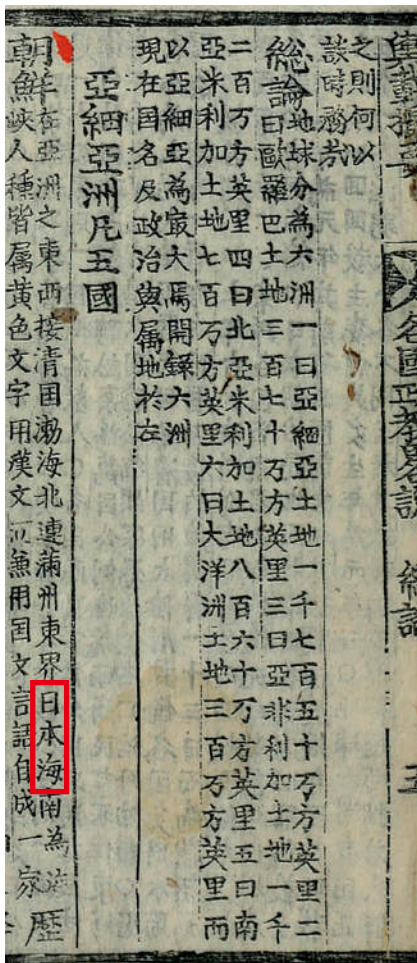 輿載撮要 各國政教畧說 総論 五
之則何以
談時務哉
総論 地球分為六洲一曰亞細亞土地一千七百五十万方英里二
曰歐羅巴土地三百七十万方英里三曰亞非利加土地一千
二百万方英里四曰北亞米利加土地八百六十万方英里五曰南
亞米利加土地七百万方英里六曰大洋洲土地三百万方英里而
以亞細亞為最大焉開錄六洲
現在国名及政治與属地於左
亞細亞洲凡五國
朝鮮 在亞洲之東西接清国渤海北連滿州東界日本海南為海
峽人種皆属黃色文字用漢文而兼用国文言語自成一家 歷